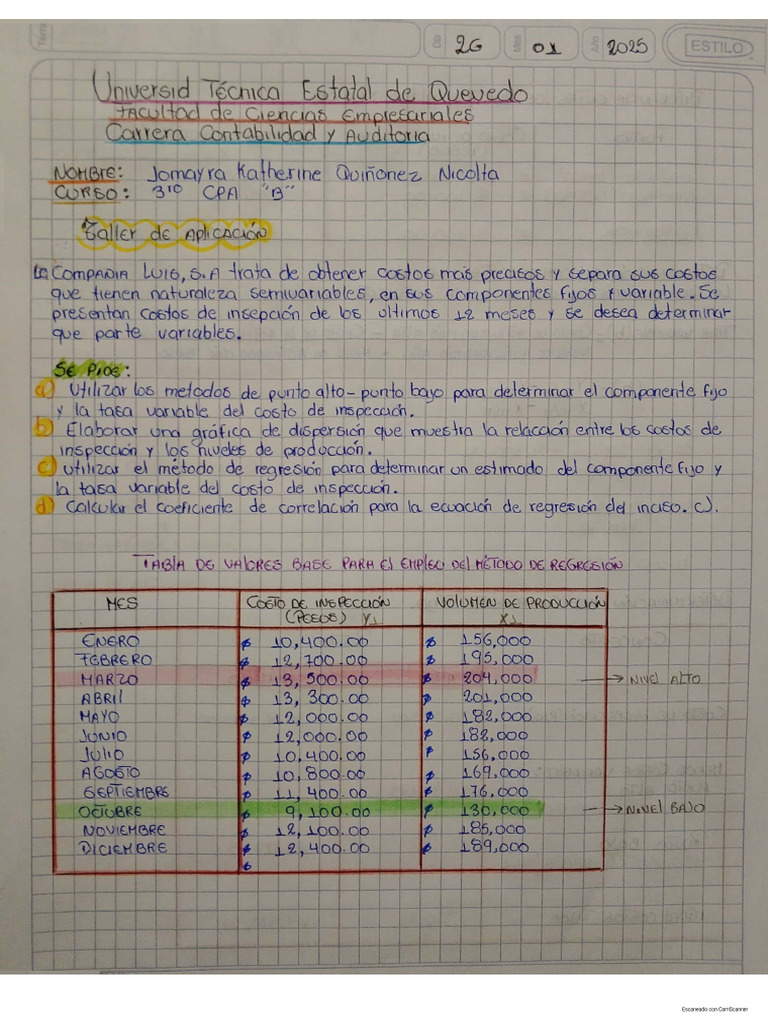 Tema
Día 26 Mes 01 Año 2025 ESTILO
Universid Técnica Estatal de Quevedo
Facultad de Ciencias Empresariales
Carrera Contabilidad y Auditoria
NOMBRE: Jomayra Katherine Quiñonez Nicolta
CURSO: 3ro CPA "B"
Taller de Aplicación
COMPAÑIA LUIS, S.A trata de obtener costos mas precisos y separa sus costos
que tienen naturaleza semivariables, en sus componentes fijos y variable. Se
presentan costos de insepción de los ultimos 12 meses y se desea determinar
que parte variables.
SE PIDE:
a) Utilizar los metodos de punto alto-punto bajo para determinar el componente fijo
y la tasa variable del costo de inspección.
b) Elaborar una gráfica de dispersión que muestra la relacción entre los costos de
inspección y los niveles de producción.
c) Utilizar el método de regresión para determinar un estimado del componente fijo y
la tasa variable del costo de inspección.
d) Calcular el coeficiente de correlación para la ecuación de regresión del inciso. c).
TABLA DE VALORES BASE PARA El EMPLEO DEL MÉTODO DE REGRESIÓN
MES COSTO DE INSPECCIÓN VOLUMEN DE PRODUCCIÓN
(PESOS) Y1 X1
ENERO $ 10,400.00 $ 156,000
FEBRERO $ 12,700.00 $ 195,000
MARZO $ 13,500.00 $ 204,000 → NIVEL ALTO
ABRIL $ 13,300.00 $ 201,000
MAYO $ 12,000.00 $ 182,000
JUNIO $ 12,000.00 $ 182,000
JULIO $ 10,400.00 $ 156,000
AGOSTO $ 10,800.00 $ 169,000
SEPTIEMBRE $ 11,400.00 $ 176,000
OCTUBRE $ 9,100.00 $ 130,000 → NIVEL BAJO
NOVIEMBRE $ 12,100.00 $ 185,000
DICIEMBRE $ 12,400.00 $ 189,000
$
Escaneado con CamScanner